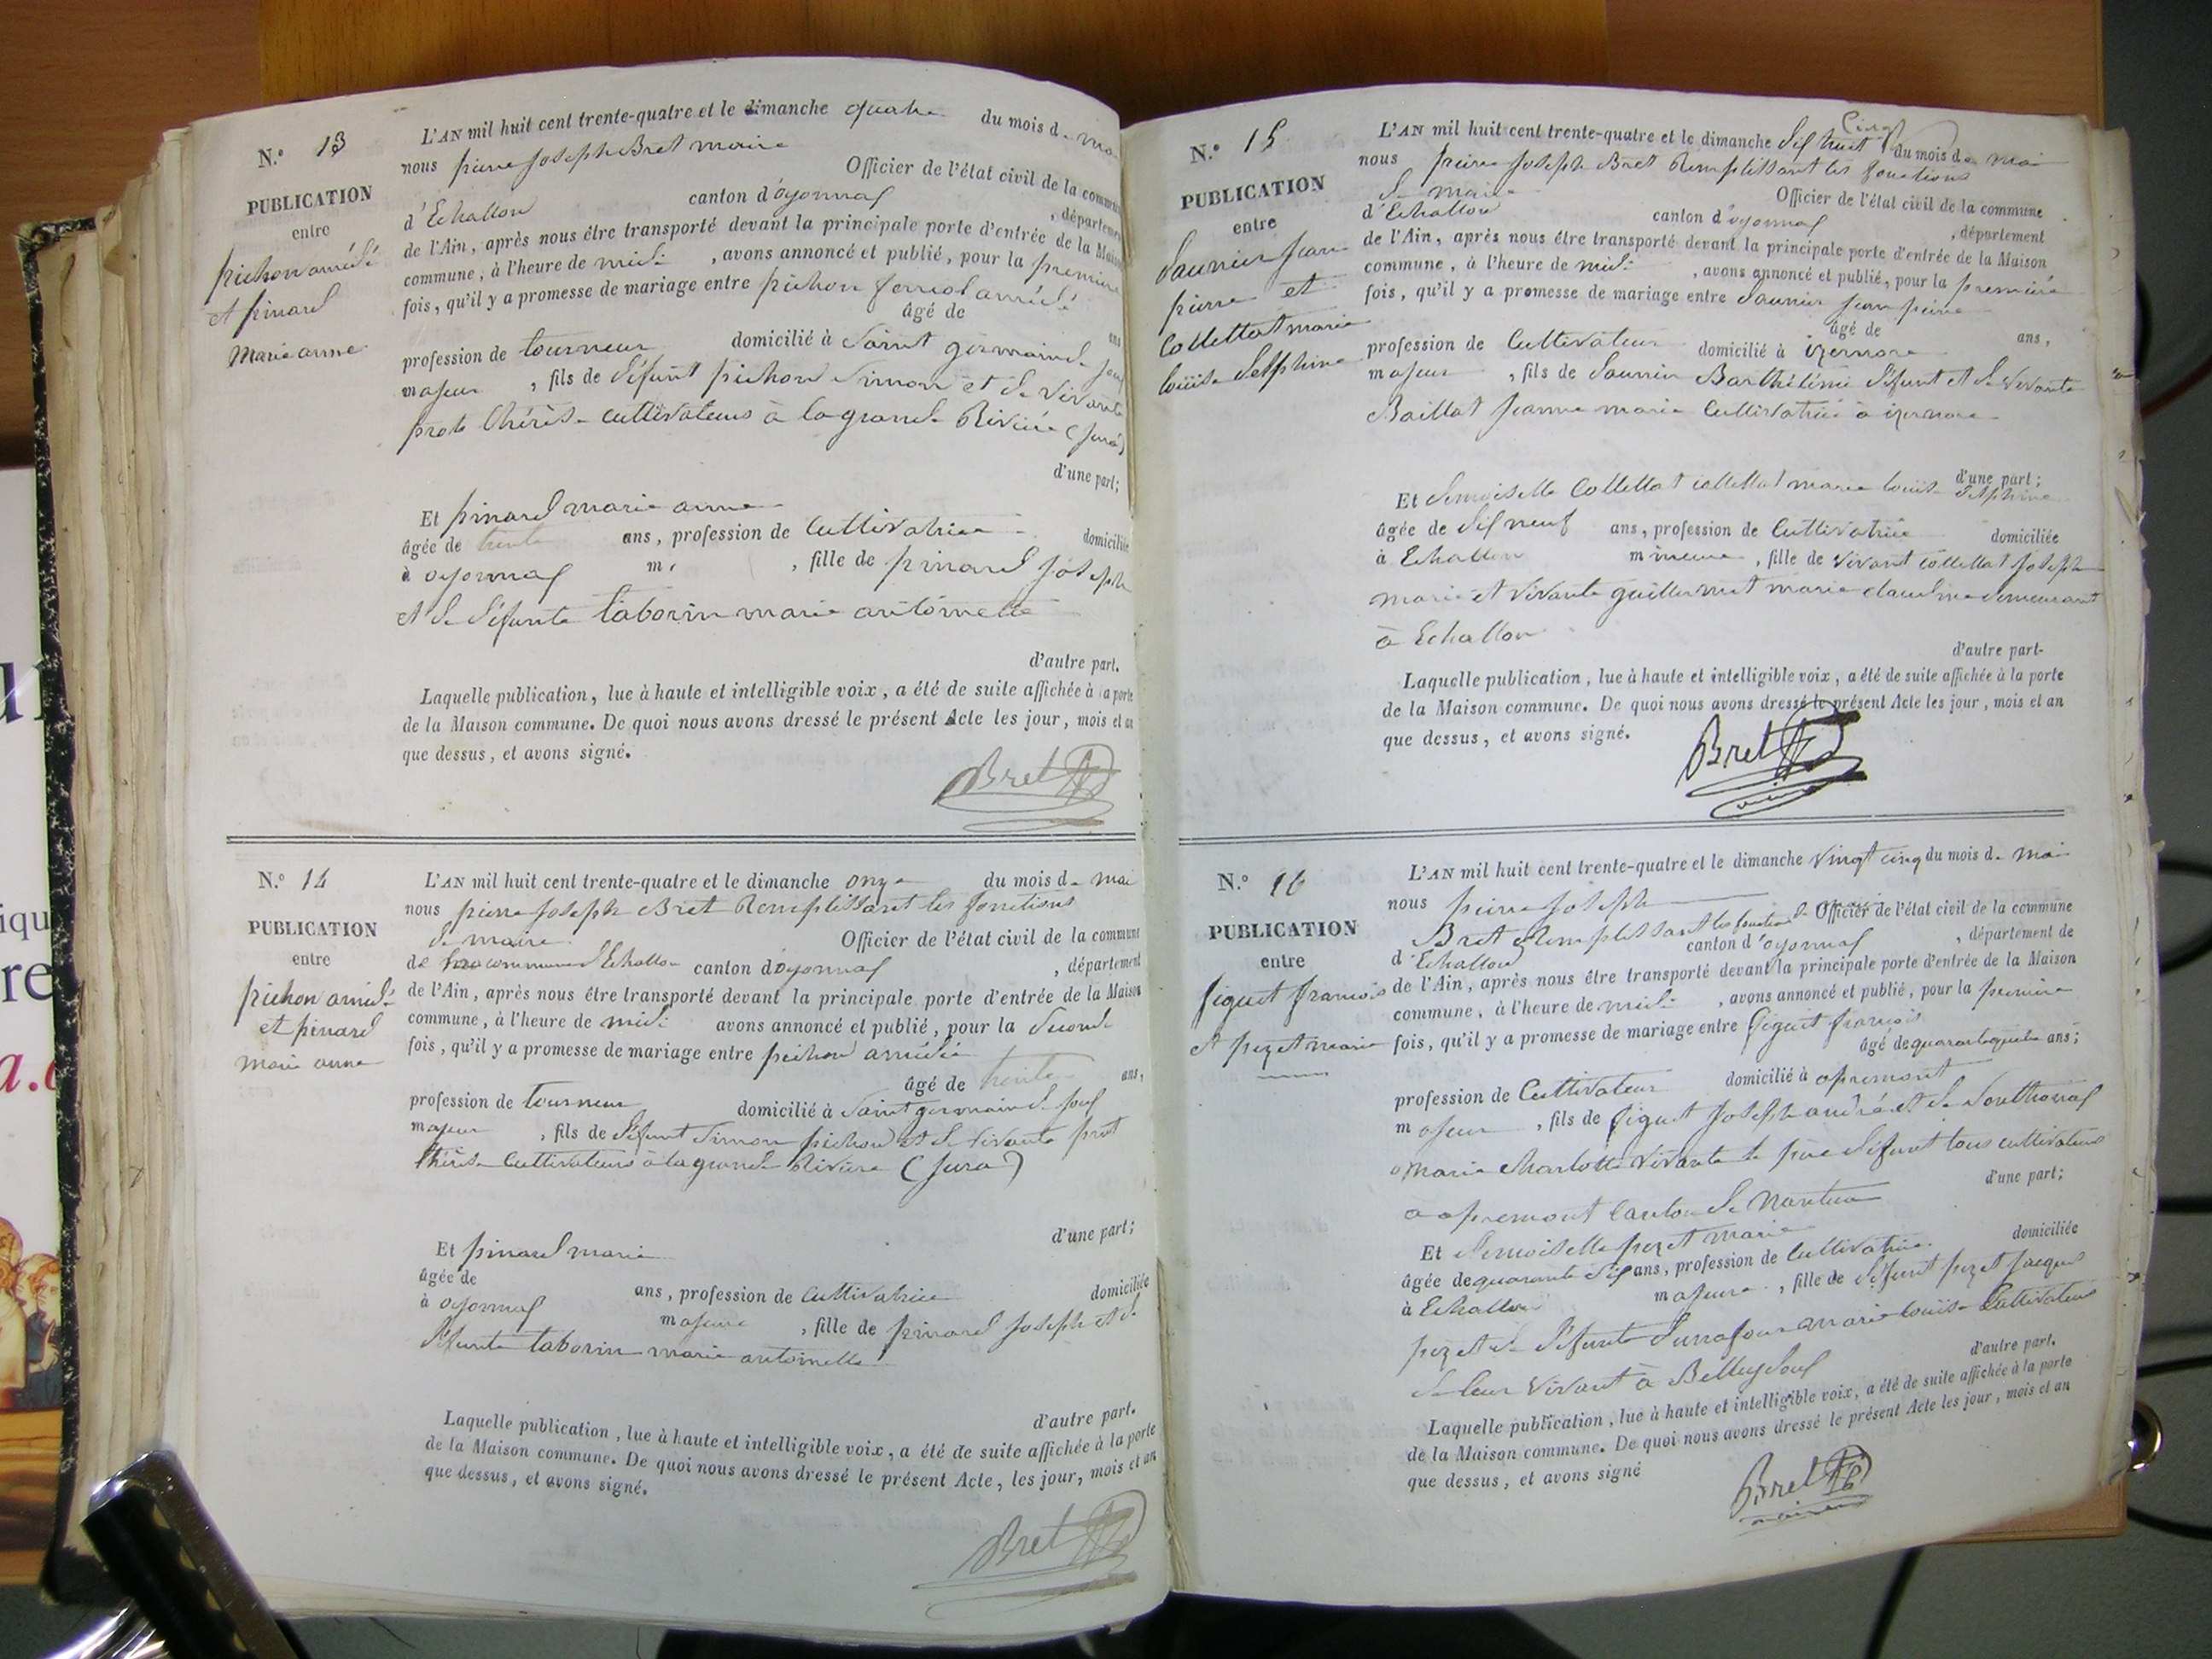 N.º 13
PUBLICATION
entre
pichon amédé
et pinard
Marie anne
L'AN mil huit cent trente-quatre et le dimanche quatre du mois de mai
nous pierre Joseph Bret maire
Officier de l'état civil de la commune
d'Echallon canton d'oyonnax , département
de l'Ain, après nous être transporté devant la principale porte d'entrée de la Maison
commune, à l'heure de midi , avons annoncé et publié, pour la premiere
fois, qu'il y a promesse de mariage entre pichon amédé
âgé de ans
profession de tourneur domicilié à Saint germain de Joux
majeur , fils de défunt pichon Simon et de vivante
prost thérèse cultivateurs à la grande Rivière (jura)
d'une part;
Et pinard marie anne
âgée de trente ans, profession de Cultivatrice domiciliée
à oyonnax m , fille de pinard Joseph
et de défunte taborin marie antoinette
d'autre part.
Laquelle publication, lue à haute et intelligible voix, a été de suite affichée à la porte
de la Maison commune. De quoi nous avons dressé le présent Acte les jour, mois et an
que dessus, et avons signé.
Bret
N.º 14
PUBLICATION
entre
pichon amédé
et pinard
marie anne
L'AN mil huit cent trente-quatre et le dimanche onze du mois de mai
nous pierre Joseph Bret Remplissant les fonctions
de maire Officier de l'état civil de la commune
de Echallon canton d'oyonnax , département
de l'Ain, après nous être transporté devant la principale porte d'entrée de la Maison
commune, à l'heure de midi avons annoncé et publié, pour la seconde
fois, qu'il y a promesse de mariage entre pichon amédée
âgé de trente ans,
profession de tourneur domicilié à Saint germain de Joux
majeur , fils de défunt Simon pichon et de vivante prost
thérèse Cultivateurs à la grande Rivière (Jura)
d'une part;
Et pinard marie
âgée de ans, profession de Cultivatrice domiciliée
à oyonnax majeure , fille de pinard Joseph et de
défunte taborin marie antoinette
d'autre part.
Laquelle publication, lue à haute et intelligible voix, a été de suite affichée à la porte
de la Maison commune. De quoi nous avons dressé le présent Acte, les jour, mois et an
que dessus, et avons signé.
Bret
N.º 15
PUBLICATION
entre
Saunier Jean
pierre et
Collettat marie
louïse delphine
L'AN mil huit cent trente-quatre et le dimanche dix huit du mois de mai
nous pierre Joseph Bret Remplissant les fonctions
de maire Officier de l'état civil de la commune
d'Echallon canton d'oyonnax , département
de l'Ain, après nous être transporté devant la principale porte d'entrée de la Maison
commune, à l'heure de midi , avons annoncé et publié, pour la première
fois, qu'il y a promesse de mariage entre Saunier Jean pierre
âgé de ans,
profession de Cultivateur domicilié à izernore
majeur , fils de Saunier Barthélémi défunt et de vivante
Baillat Jeanne marie Cultivatrice à izernore
d'une part;
Et demoiselle Collettat collettat marie louïse delphine
âgée de dix neuf ans, profession de Cultivatrice domiciliée
à Echallon mineure , fille de vivant collettat Joseph
marie et vivante guillermet marie claudine demeurant
à Echallon
d'autre part.
Laquelle publication, lue à haute et intelligible voix, a été de suite affichée à la porte
de la Maison commune. De quoi nous avons dressé le présent Acte les jour, mois et an
que dessus, et avons signé.
Bret
N.º 16
PUBLICATION
entre
figuet françois
et pezet marie
L'AN mil huit cent trente-quatre et le dimanche vingt cinq du mois de mai
nous pierre Joseph
Bret Remplissant les fonctions de Officier de l'état civil de la commune
d'Echallon canton d'oyonnax , département de
de l'Ain, après nous être transporté devant la principale porte d'entrée de la Maison
commune, à l'heure de midi , avons annoncé et publié, pour la première
fois, qu'il y a promesse de mariage entre figuet françois
âgé de quarante quatre ans;
profession de Cultivateur domicilié à apremont
majeur , fils de figuet Joseph andré et de Southonnax
marie charlotte vivante le père défunt tous cultivateurs
a apremont Canton de Nantua
d'une part;
Et demoiselle pezet marie
âgée de quarante dix ans, profession de Cultivatrice domiciliée
à Echallon majeure , fille de défunt pezet Jacques
pezet et de défunte marie louïse Cultivateurs
de leur vivant à Belleydoux
d'autre part.
Laquelle publication, lue à haute et intelligible voix, a été de suite affichée à la porte
de la Maison commune. De quoi nous avons dressé le présent Acte les jour, mois et an
que dessus, et avons signé
Bret